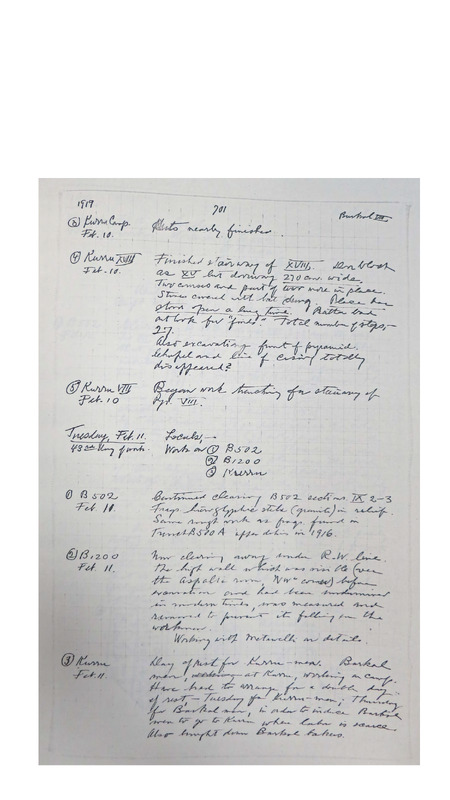 1919
701
Barkal III
③ Kurru Camp. Huts nearly finished.
Feb. 10.
④ Kurru XVIII Finished stairway of XVIII. Door block
Feb. 10. as XV but doorway 270 cm. wide.
Two courses and part of two more in place.
Stones covered with bat dung. Place has
stood open a long time. Rather bad
outlook for "finds". Total number of steps,-
27.
Also excavating front of pyramid.
Chapel and line of casing totally
disappeared?
⑤ Kurru VIII Began work trenching for stairway of
Feb. 10 Pyr. VIII.
Tuesday, Feb. 11. Locals;-
43rd day of work. Work on ① B502
② B1200
③ Kurru
① B502 Continued clearing B502 sections IX 2-3
Feb. 11. Frags. hieroglyphic stela (granite) in relief.
Same rough work as frags. found in
Trench B500A in 1916.
② B1200 Now clearing away under R.W. line.
Feb. 11. The high wall which was visible (over
the room, "NW" corner) before
excavation and had been undermined
in modern times, was measured and
removed to prevent its falling on the
workmen.
Working with on details.
③ Kurru Day of rest for Kurru-men. Barkal
Feb. 11. men, at Kurru, working on camp.
Have had to arrange for a double day
of rest – Tuesday for Kurru-men; Thursday
for Barkal men, in order to induce Barkal
men to go to Kurru where labor is scarce.
Also brought down Barkal bakers.